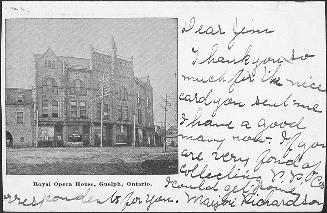 Dear Jim
Thank you so
much for the nice
card you sent me
I have a good
many now. If you
are very fond of
collecting P.P.Cs
I could get some
correspondents for you. Maybel Richardson
Royal Opera House, Guelph, Ontario.